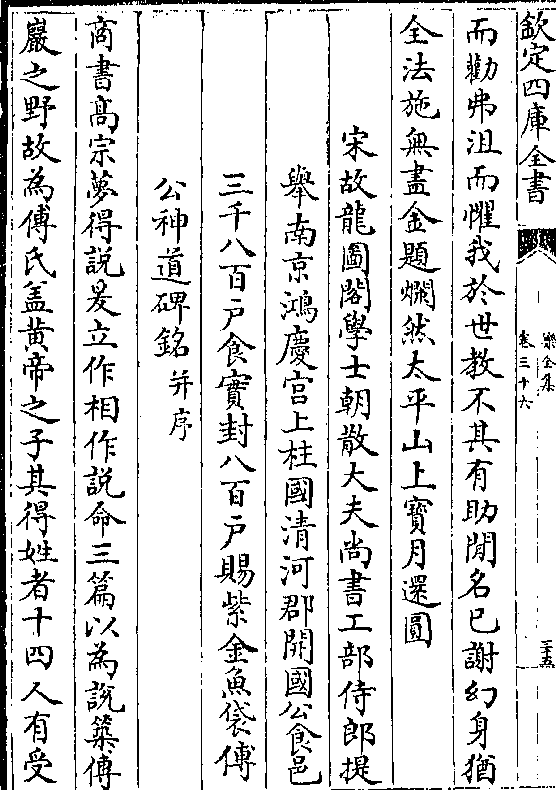 欽定四庫全書
樂全集
卷三十六
三十五
而勸弗沮而懼我於世教不其有助聞名已謝幻身猶
全法施無盡金題爛然太平山上寶月還圓
宋故龍圖閣學士朝散大夫尚書工部侍郎提
舉南京鴻慶宫上柱國清河郡開國公食邑
三千八百户食實封八百户賜紫金魚袋傅
公神道碑銘并序
商書髙宗夢得説爰立作相作説命三篇以為説築傅
巖之野故為傅氏盖黄帝之子其得姓者十四人有受